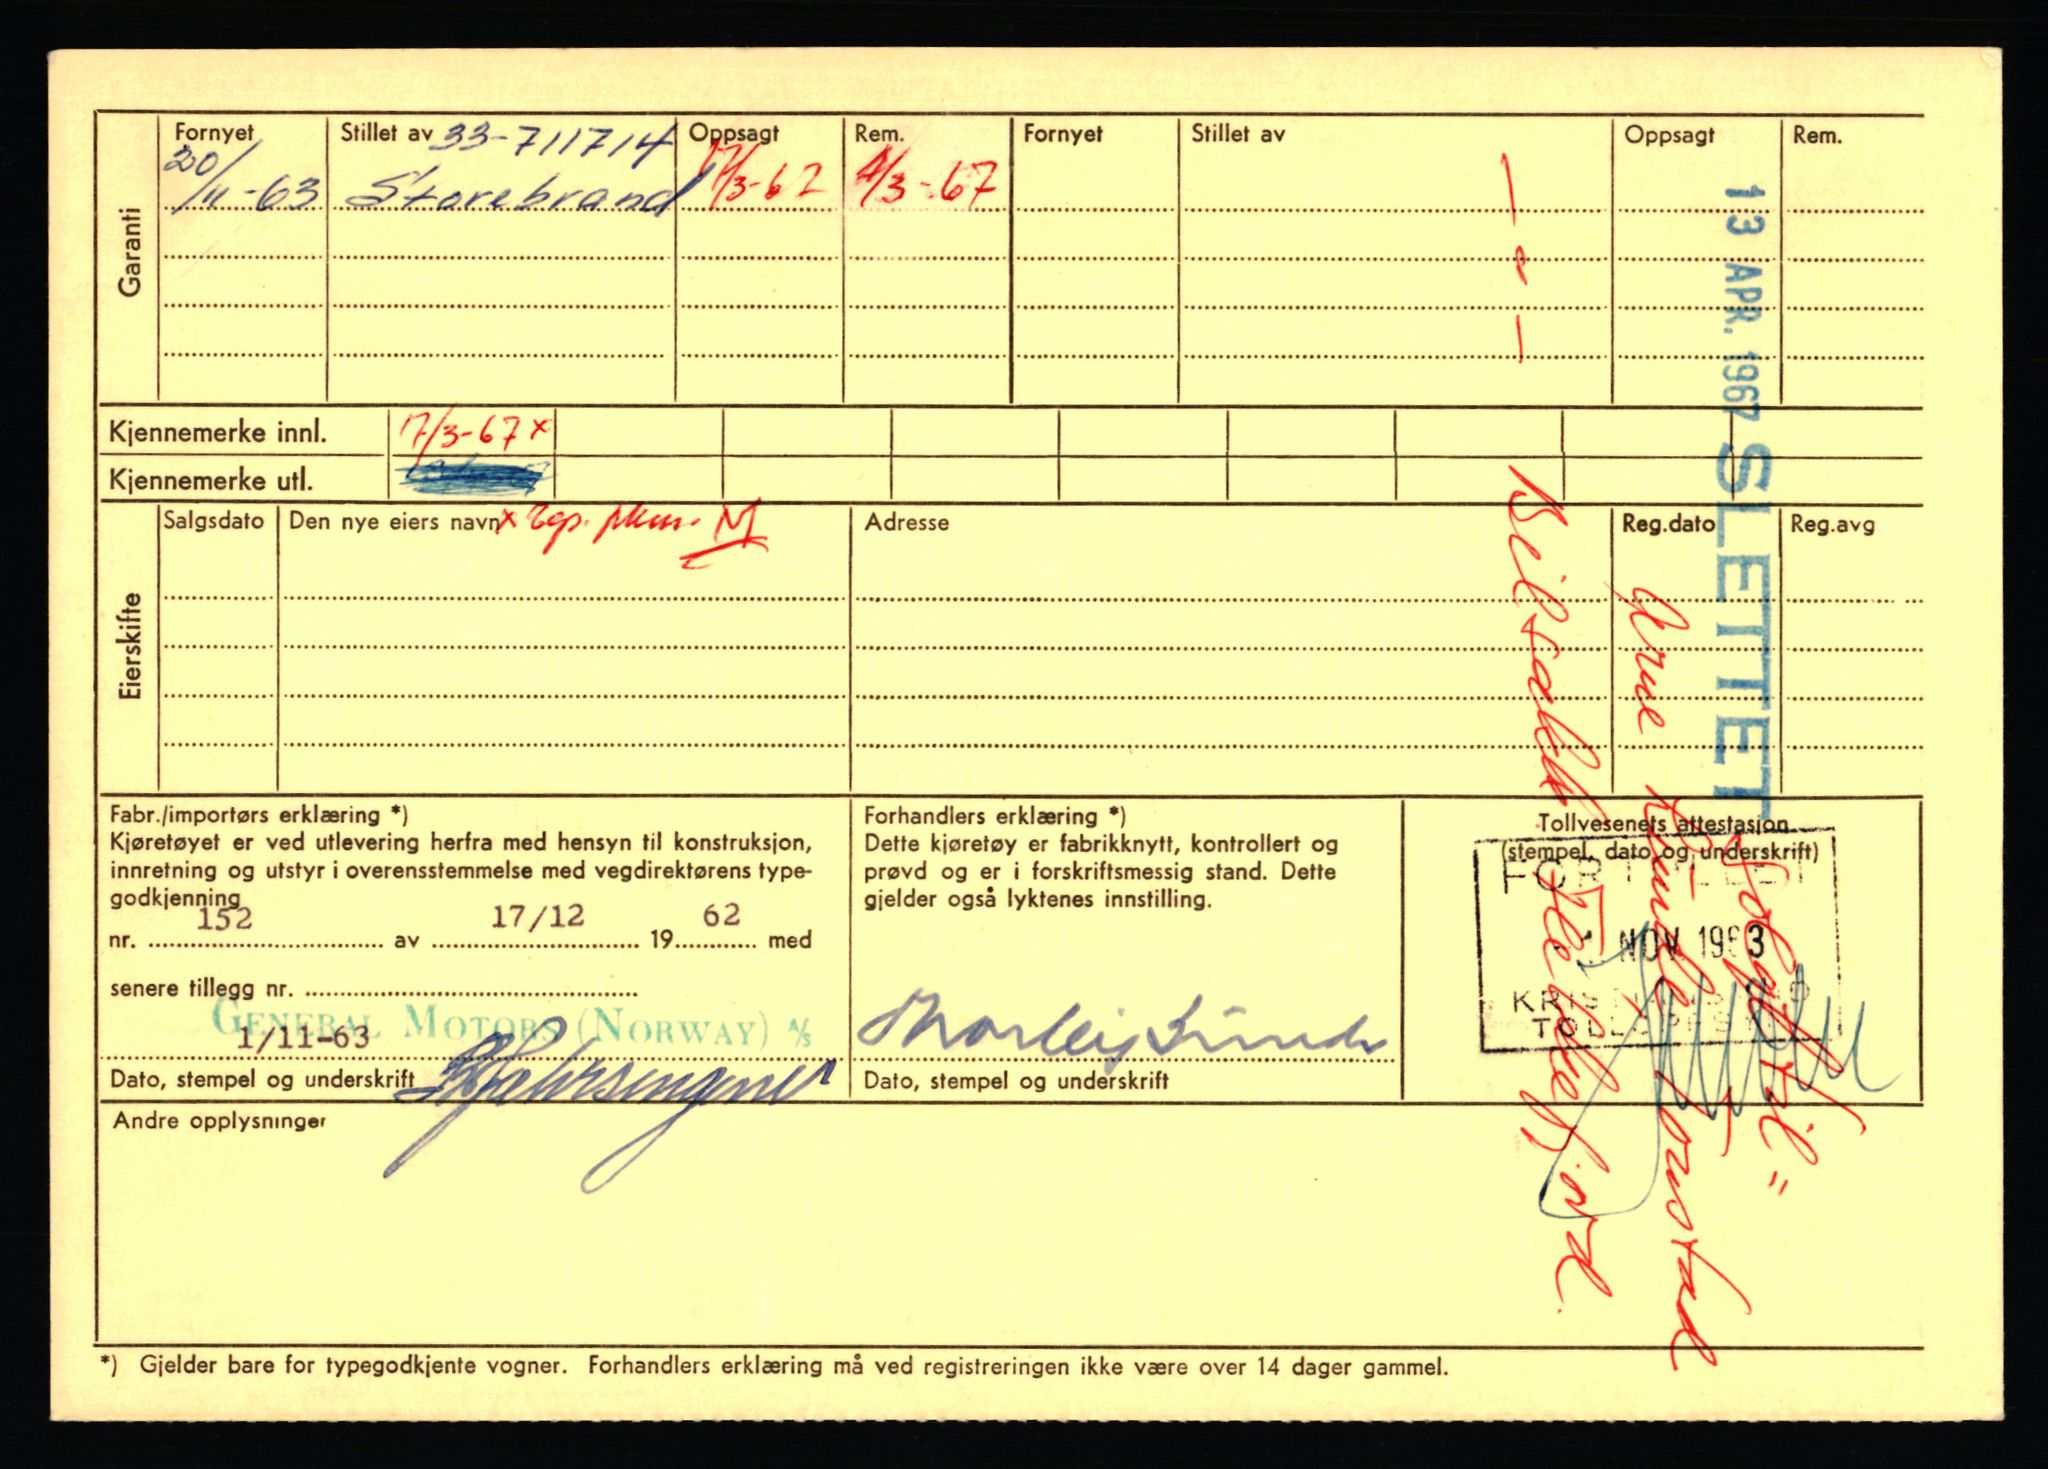 Garanti
Fornyet Stillet av 33-711714 Oppsagt Rem. Fornyet Stillet av Oppsagt Rem.
20/11-63 Storebrand 17/3-67 4/3-67
— o —
13 APR. 1967 SLETTET
Kjennemerke innl. 17/3-67 x
Kjennemerke utl.
Eierskifte
Salgsdato Den nye eiers navn x Adresse Reg.dato Reg.avg
Solgt til =
Arne Rundle Jonstad
Fabr./importørs erklæring *)
Kjøretøyet er ved utlevering herfra med hensyn til konstruksjon,
innretning og utstyr i overensstemmelse med vegdirektørens type-
godkjenning
nr. 152 av 17/12 1962 med
senere tillegg nr.
GENERAL MOTORS (NORWAY) A/S
1/11-63
Dato, stempel og underskrift
Forhandlers erklæring *)
Dette kjøretøy er fabrikknytt, kontrollert og
prøvd og er i forskriftsmessig stand. Dette
gjelder også lyktenes innstilling.
Dato, stempel og underskrift
Tollvesenets attestasjon
(stempel, dato og underskrift)
FORTOLLET
-1 NOV. 1963
Andre opplysninger
*) Gjelder bare for typegodkjente vogner. Forhandlers erklæring må ved registreringen ikke være over 14 dager gammel.